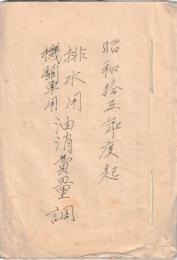 昭和拾五年度起
排水用
機關車用油消費量調